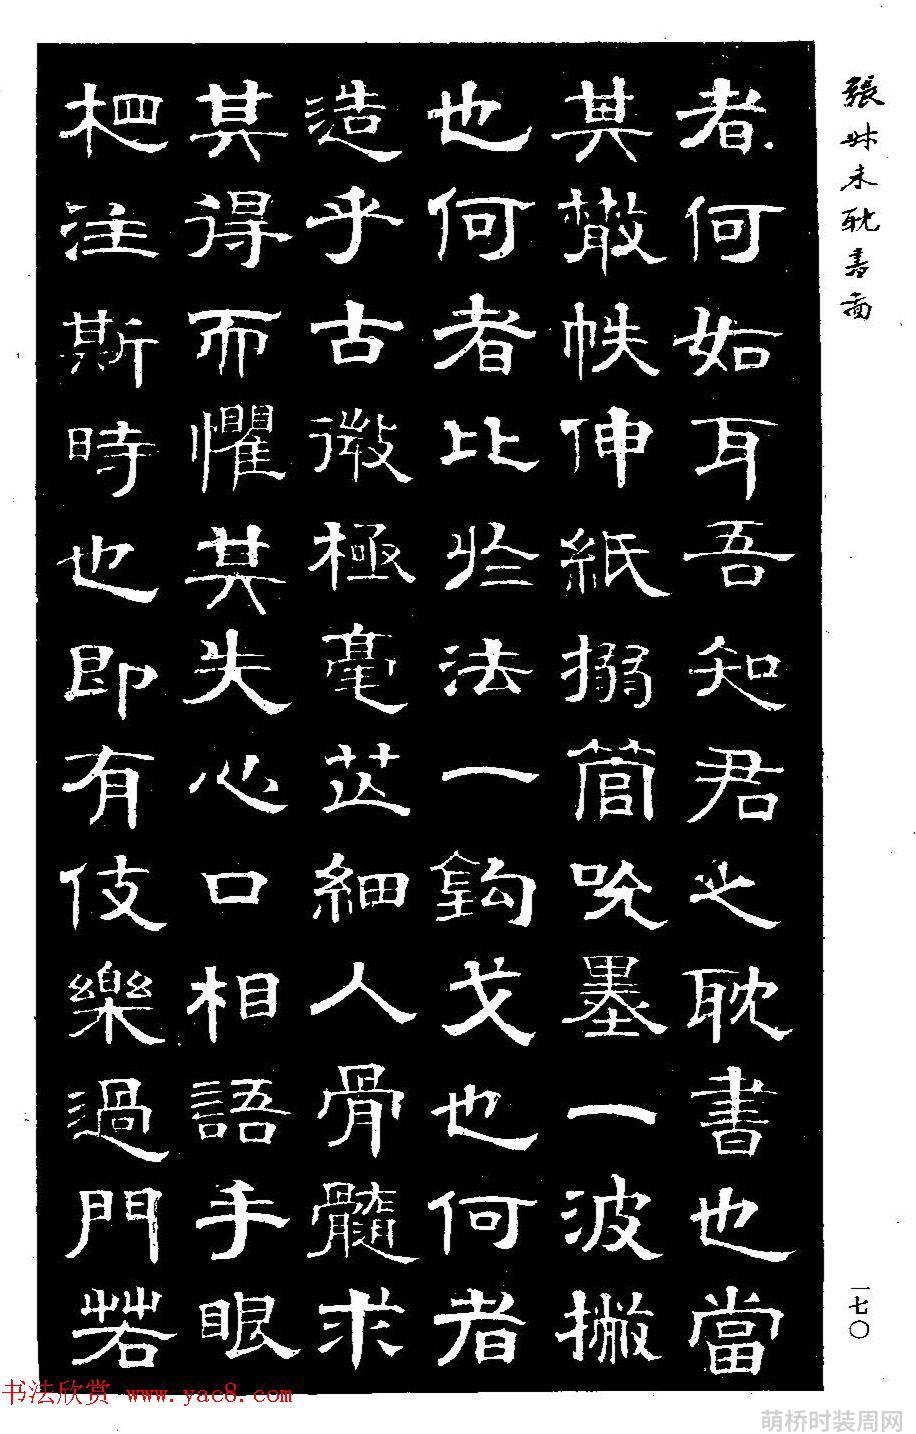 張妹未耽書圖
者何如耳吾知君之耽書也當
其散帙伸紙搦管吮墨一波撇
也何者比於法一鈎戈也何者
造乎古徵極毫芒細人骨髓求
其得而懼其失心口相語手眼
杷注斯時也即有伎樂過門若
一七〇
书法欣赏 www.yac8.com
萌桥时装周网